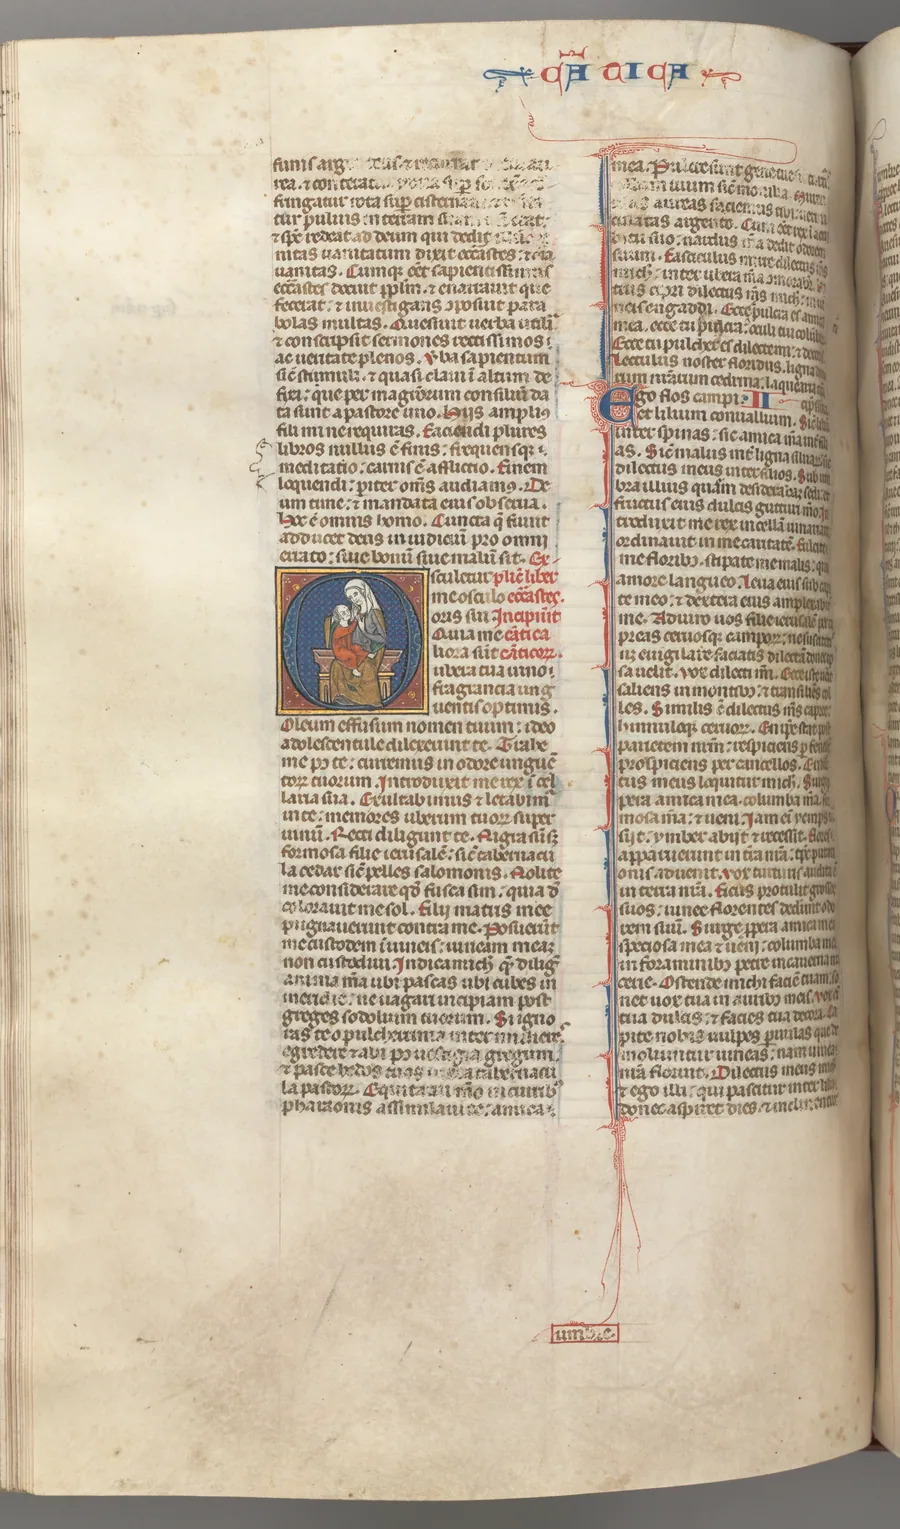 CA TICA
funis arg
rea. ⁊ conterat
fringatur rota sup cisterna
tur puluis in terram
⁊ sp̄c redeat ad deum qui dedit
nitas uanitatum dixit ecc̄astes: ⁊ oīa
uanitas. Cumq; eēt sapientissimus
ecc̄astes docuit ip̄lm. ⁊ enarrauit que
fecerat: ⁊ inuestigans ꝯposuit para
bolas multas. Quesiuit uerba utilia
⁊ conscripsit sermones rectissimos:
ac ueritate plenos. Vba sapientum
sic̄ stimuli. ⁊ quasi claui ī altum de
fixi: que per magr̄orum consiliū da
ta sunt a pastore uno. Hijs amplius
fili mi ne requiras. Faciendi plures
libros nullus ē finis: frequensq;
meditatio: carnis ē afflictio. Finem
loquendi: pìter om̄s audiamꝰ. De
um time: ⁊ mandata eius obserua.
Hoc ē omnis homo. Cuncta q̄ fiunt
adducet deus in iudiciū pro omni
errato: siue bonū siue malū sit. Ex
sculetur plic̄ liber
me osculo ecc̄astes.
oris sui. Incipiūt
Quia me cātica
liora sūt cāticorꝝ.
ubera tua uino:
fragrancia ung
uentis optimis.
Oleum effusum nomen tuum: ideo
adolescentule dilexerunt te. Trahe
me pꝰ te: curremus in odore unguē
torꝝ tuorum. Introduxit me rex ī cel
laria sua. Exultabimus ⁊ letabim̄
in te: memores uberum tuorꝝ super
uinū. Recti diligunt te. Nigra sū sꝫ
formosa filie ierusalē: sic̄ tabernacu
la cedar sic̄ pelles salomonis. Nolite
me considerare qd̄ fusca sim: quia d̄
colorauit me sol. Filij matris mee
pugnauerunt contra me. Posuerūt
me custodem ī uineis: uineam meaꝫ
non custodiui. Indica mich̄ q̄ diliḡ
anima m̄a ubi pascas ubi cubes in
meridie: ne uagari incipiam post
greges sodolium tuorum. Si igno
ras te o pulcherrima inter mulieres
egredere ⁊ abi pꝰ uestigia gregum:
⁊ pasce hedos tuos tabernacu
la pastorꝝ. Equitatui mō in curribꝰ
pharaonis assimilaui te: amica
mea. Pulcre sūnt gene tue
tuum sic̄ monilia.
aureas faciemus tibi
culatas argento. Cum eēt rex ī acu
bitu suo: nardus m̄a dedit odorem
suum. Fasciculus mirre dilectus m̄s
mich̄: inter ubera m̄a ꝯmorabit
trus cypri dilectus m̄s mich̄: in
neis engaddi. Ecce pulcra es amica
mea. ecce tu pulcra: oculi tui colūb
Ecce tu pulcher es dilecte mi: ⁊ decorus
Lectulus noster floridus. ligna do
rum nr̄arum cedrina: laquearia
Ego flos campi: II
et lilium conuallium. Sic̄ lilium
inter spinas: sic amica m̄a int̄ fili
as. Sic̄ malus int̄ ligna siluarū: sic
dilectus meus inter filios. Sub um
bra illius quam desiderabar sedi: et
fructus eius dulcis gutturi mō. In
troduxit me rex in cellā uinariam
ordinauit in me caritatē. Fulcite
me floribꝰ. stipate me malis: quia
amore langueo. Leua eius sub cap
te meo: ⁊ dextera eius amplexabit
me. Adiuro uos filie ierusalē per
preas ceruosq; camporꝝ: ne suscitetis
neꝫ euigilare faciatis dilectā donec ip
sa uelit. Vox dilecti m̄i. Ecce iste uenit
saliens in montibꝰ: ⁊ transiliēs col
les. Similis ē dilectus m̄s capree
hinnuloq; ceruorꝝ. En ip̄e stat post
parietem nr̄m: respiciens p̄ fenest
prospiciens per cancellos. En dilec
tus meus loquitur mich̄. Surge
pera amica mea. columba m̄a. for
mosa m̄a: ⁊ ueni. Iam eī yemps t̄n
sijt: ymber abijt ⁊ recessit. Flores
apparuerunt in t̄ra nr̄a: tp̄c putati
onis aduenit. Vox turturis audita ē
in terra nr̄a. Ficus protulit grossos
suos: uinee florentes dederūt odo
rem suū. Surge p̄pera amica mea
speciosa mea ⁊ ueni: columba mea
in foraminibꝰ petre in cauerna ma
cerie. Ostende michi faciē tuam. so
net uox tua in auribꝰ meis. Vox ēī
tua dulcis: ⁊ facies tua decora. Ca
pite nobis uulpes paruulas que de
moliuntur uineas: nam uinea
nr̄a floruit. Dilectus meus michi
⁊ ego illi: qui pascitur inter lilia
donec aspiret dies. ⁊ inclinentur
umbre.